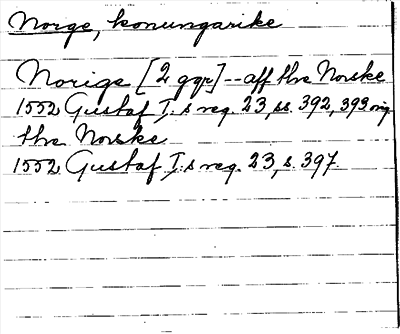 Norge, konungarike
Norige [2 ggr] -- aff the Norske
1552 Gustaf I:s reg. 23, ss. 392, 393 orig.
the Norske
1552 Gustaf I:s reg. 23, s. 397.